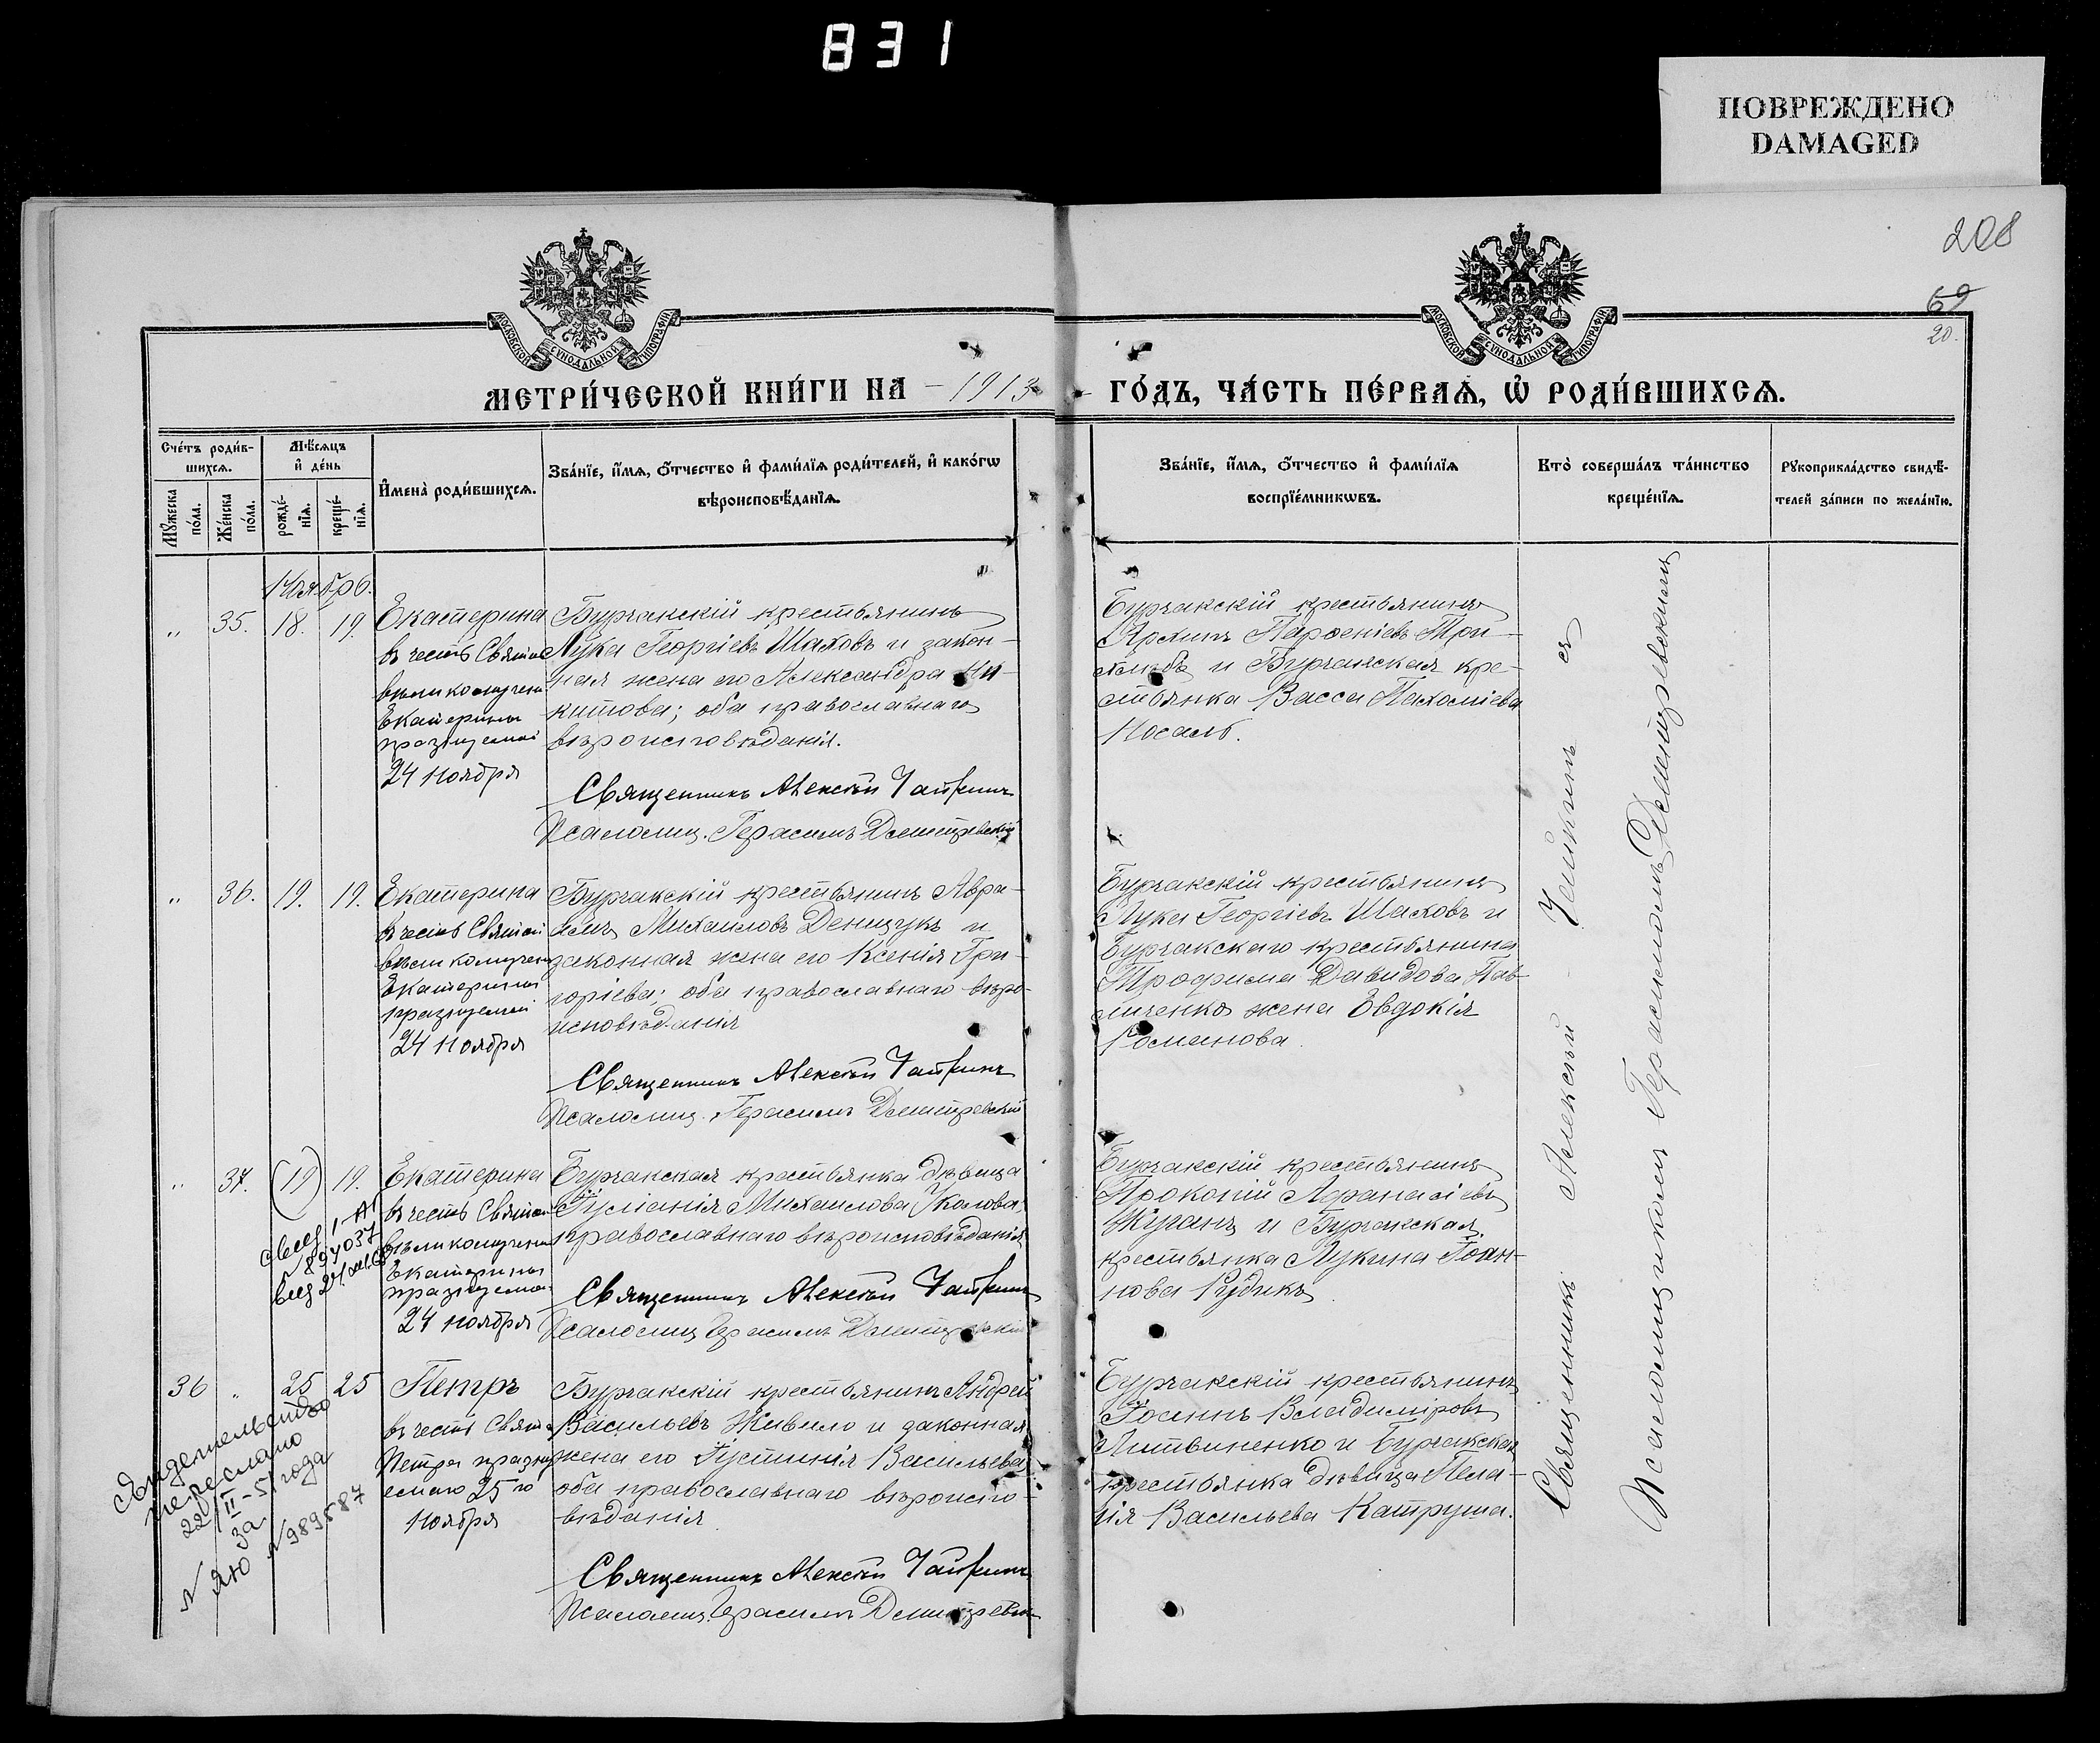 831
ПОВРЕЖДЕНО
DAMAGED
208
69
20.
МОСКОВСКОЙ СѴНОДАЛЬНОЙ ТИПОГРАФІИ
МОСКОВСКОЙ СѴНОДАЛЬНОЙ ТИПОГРАФІИ
МЕТРИ́ЧЕСКОЙ КНИ́ГИ НА - 1913 - ГО́ДЪ, ЧА́СТЬ ПЕ́РВАѦ, Ѽ РОДИ́ВШИХСѦ.
Сче́тъ роди́в-
шихсѧ.
Мꙋ́жеска
по́ла.
Же́нска
по́ла.
Мѣ́сяцъ
и҆ де́нь
рожде́-
нїѧ.
креще́-
нїѧ.
И҆мена̀ роди́вшихсѧ.
Зва́нїе, и҆́мѧ, ѻ҆́тчество и҆ фами́лїѧ роди́телей, и҆ како́гѡ
вѣроисповѣ́данїѧ.
Зва́нїе, и҆́мѧ, ѻ҆́тчество и҆ фами́лїѧ
воспрїе́мникѡвъ.
Кто̀ соверша́лъ та́инство
креще́нїѧ.
Рꙋкоприкла́дство свидѣ́-
телей за́писи по жела́нїю.
Ноябрь.
" 35. 18. 19.
Екатерина
въ честь Святой
великомучен
Екатерины
празнуемой
24 ноября
Бурчакскій крестьянинъ
Лука Георгіевъ Шаховъ и закон-
ная жена его Александра Ни-
китова; оба православнаго
вѣроисповѣданія.
Священникъ Алексѣй
Псаломщ. Герасимъ Демитревскій
Бурчакскій крестьянинъ
Архипъ Парѳеніевъ При-
и Бурчакская кре-
стьянка Васса Пахоміева
Носаль.
" 36. 19. 19.
Екатерина
въ честь Святой
великомучен
Екатерины
празнуемой
24 ноября
Бурчакскій крестьянинъ Авра-
амъ Михаиловъ Денщукъ и
законная жена его Ксенія Гри-
горіева; оба православнаго вѣро-
исповѣданія
Священникъ Алексѣй
Псаломщ. Герасимъ Демитревскій
Бурчакскій крестьянинъ
Лука Георгіевъ Шаховъ и
Бурчакскаго крестьянина
Трофима Давидова Пав-
личенко жена Евдокія
Романова.
" 37. (19) 19.
Екатерина
въ честь Святой
великомучен
Екатерины
празнуемой
24 ноября
Бурчакская крестьянка дѣвица
Іуліанія Михаилова Уколова,
православнаго вѣроисповѣданія
Священникъ Алексѣй
Псаломщ Герасимъ Демитревскій
Бурчакскій крестьянинъ
Прокопій Аѳанасіевъ
Жуганъ и Бурчакская
крестьянка Лукина Іоан-
нова Рудикъ
36 " 25 25
Петръ
въ честь Свята
Петра празну
емаго 25го
ноября
Бурчакскій крестьянинъ Андрей
Васильевъ Живило и законная
жена его Іустинія Васильева
оба православнаго вѣроиспо-
вѣданія
Священникъ Алексѣй
Псаломщ. Герасимъ Демитревскій
Бурчакскій крестьянинъ
Іоаннъ Владиміровъ
Литвиненко и Бурчакская
крестьянка дѣвица Пела-
гія Васильева Катруша.
Свидетельство
переслано
22/II-51 года
за
№ 989587
Священникъ Алексѣй
Псаломщикомъ Герасимомъ Демитревскимъ